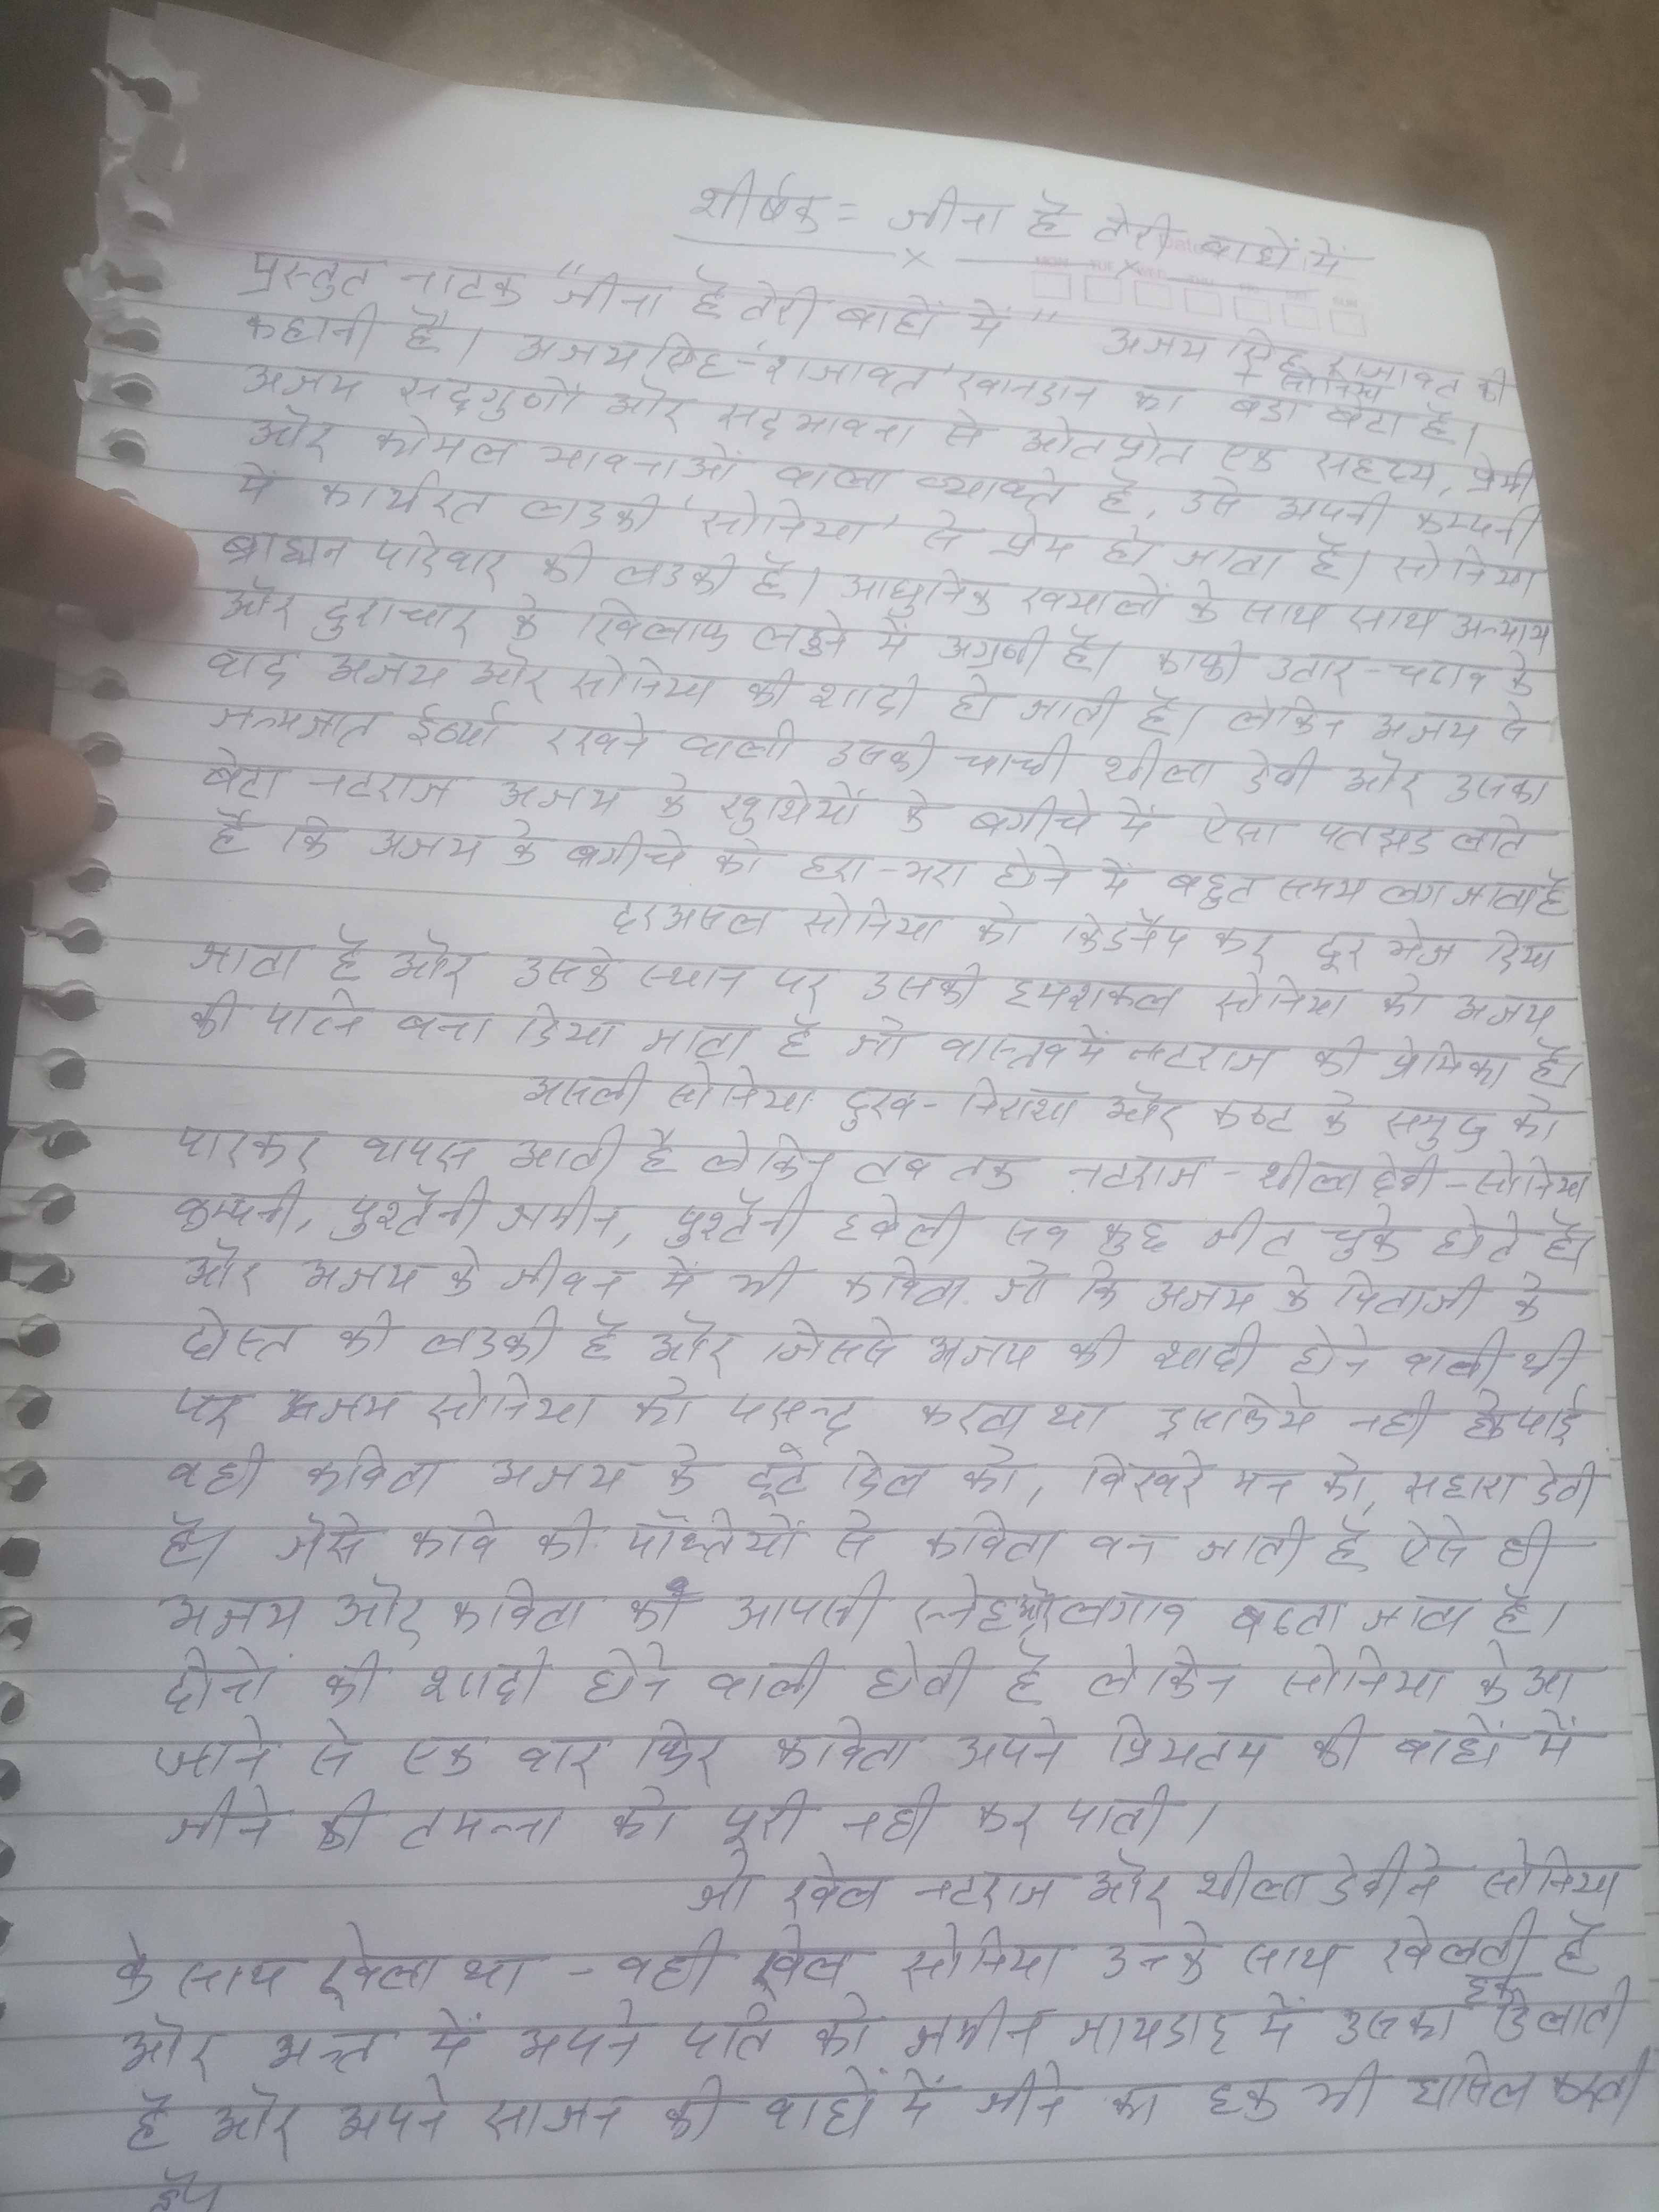 शीर्षक = जीना है तेरी बाहों में
प्रस्तुत नाटक "जीना है तेरी बाहों में" अजय सिंह राजावत की
+ सोनिया
कहानी है। अजयसिंह-'राजावत' खानदान का बडा बेटा है।
अजय सद्गुणों और सदभावना से ओतप्रोत एक सहृदय, प्रेमी
और कोमल भावनाओं वाला व्यक्ति है, उसे अपनी कम्पनी
में कार्यरत लडकी 'सोनिया' से प्रेम हो जाता है। सोनिया
ब्राह्मन परिवार की लडकी है। आधुनिक खयालों के साथ साथ अन्याय
और दुराचार के खिलाफ लडने में अग्रणी है। काफी उतार-चढाव के
बाद अजय और सोनिया की शादी हो जाती है। लेकिन अजय से
जन्मजात ईर्ष्या रखने वाली उसकी चाची शीला देवी और उसका
बेटा नटराज अजय के खुशियों के बगीचे में ऐसा पतझड लाते
है कि अजय के बगीचे को हरा-भरा होने में बहुत समय लग जाता है
दरअसल सोनिया को किडनैप कर दूर भेज दिया
जाता है और उसके स्थान पर उसकी हमशकल सोनिया को अजय
की पत्नि बना दिया जाता है जो वास्तव में नटराज की प्रेमिका है।
असली सोनिया दुख-निराशा और कष्ट के समुद्र को
पारकर वापस आती है लेकिन तब तक नटराज-शीला देवी-सोनिया
कम्पनी, पुश्तैनी जमीन, पुश्तैनी हवेली सब कुछ जीत चुके होते है।
और अजय के जीवन में भी कविता जो कि अजय के पिताजी के
दोस्त की लडकी है और जिससे अजय की शादी होने वाली थी
पर अजय सोनिया को पसन्द करता था इसलिये नही हो पाई
वही कविता अजय के टूटे दिल को, बिखरे मन को, सहारा देती
है। जैसे कवि की पंक्तियों से कविता बन जाती है ऐसे ही
अजय और कविता का आपसी स्नेह और लगाव बढता जाता है।
दोनों की शादी होने वाली होती है लेकिन सोनिया के आ
जाने से एक बार फिर कविता अपने प्रियतम की बाहों में
जीने की तमन्ना को पूरी नही कर पाती।
जो खेल नटराज और शीला देवी ने सोनिया
के साथ खेला था - वही खेल सोनिया उनके साथ खेलती है
हक
और अन्त में अपने पति को जमीन जायदाद में उसका दिलाती
है और अपने साजन की बाहों में जीने का हक भी हासिल करती